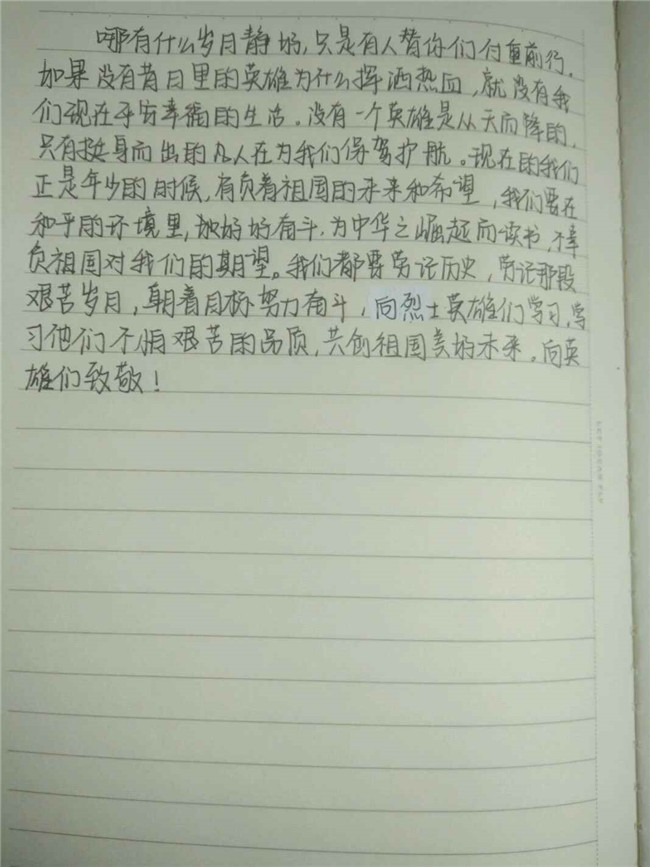 哪有什么岁月静好,只是有人替你们付重前行。
如果没有昔日里的英雄为什么挥洒热血,就没有我
们现在平安幸福的生活。没有一个英雄是从天而降的,
只有挺身而出的凡人在为我们保驾护航。现在的我们
正是年少的时候,肩负着祖国的未来和希望,我们要在
和平的环境里,好好奋斗.为中华之崛起而读书,不辜
负祖国对我们的期望。我们都要劳记历史,劳记那段
艰苦岁月,朝着目标努力奋斗,向烈士英雄们学习,学
习他们不怕艰苦的品质,共创祖国美好的未来。向英
雄们致敬!